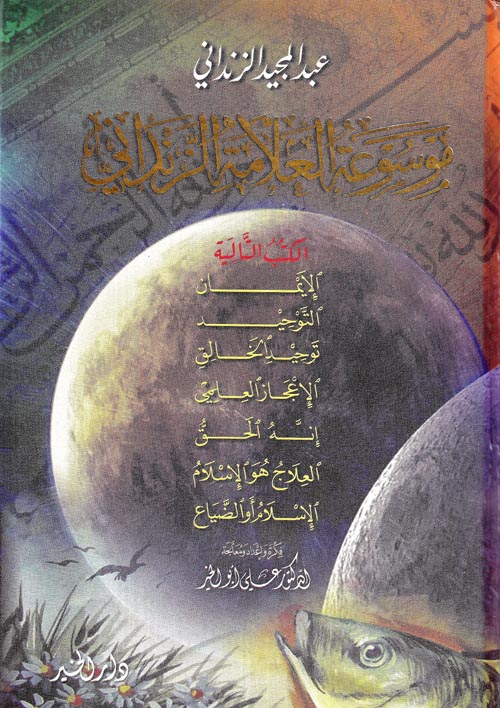 عبد المجيد الزنداني
موسوعة العلامة الزنداني
الكتب التالية
الإيمان
التوحيد
توحيد الخالق
الإعجاز العلمي
إنه الحق
العلاج هو الإسلام
الإسلام أو الضياع
فكرة وإعداد ومعالجة
الدكتور علي أبو الخير
دار الخير